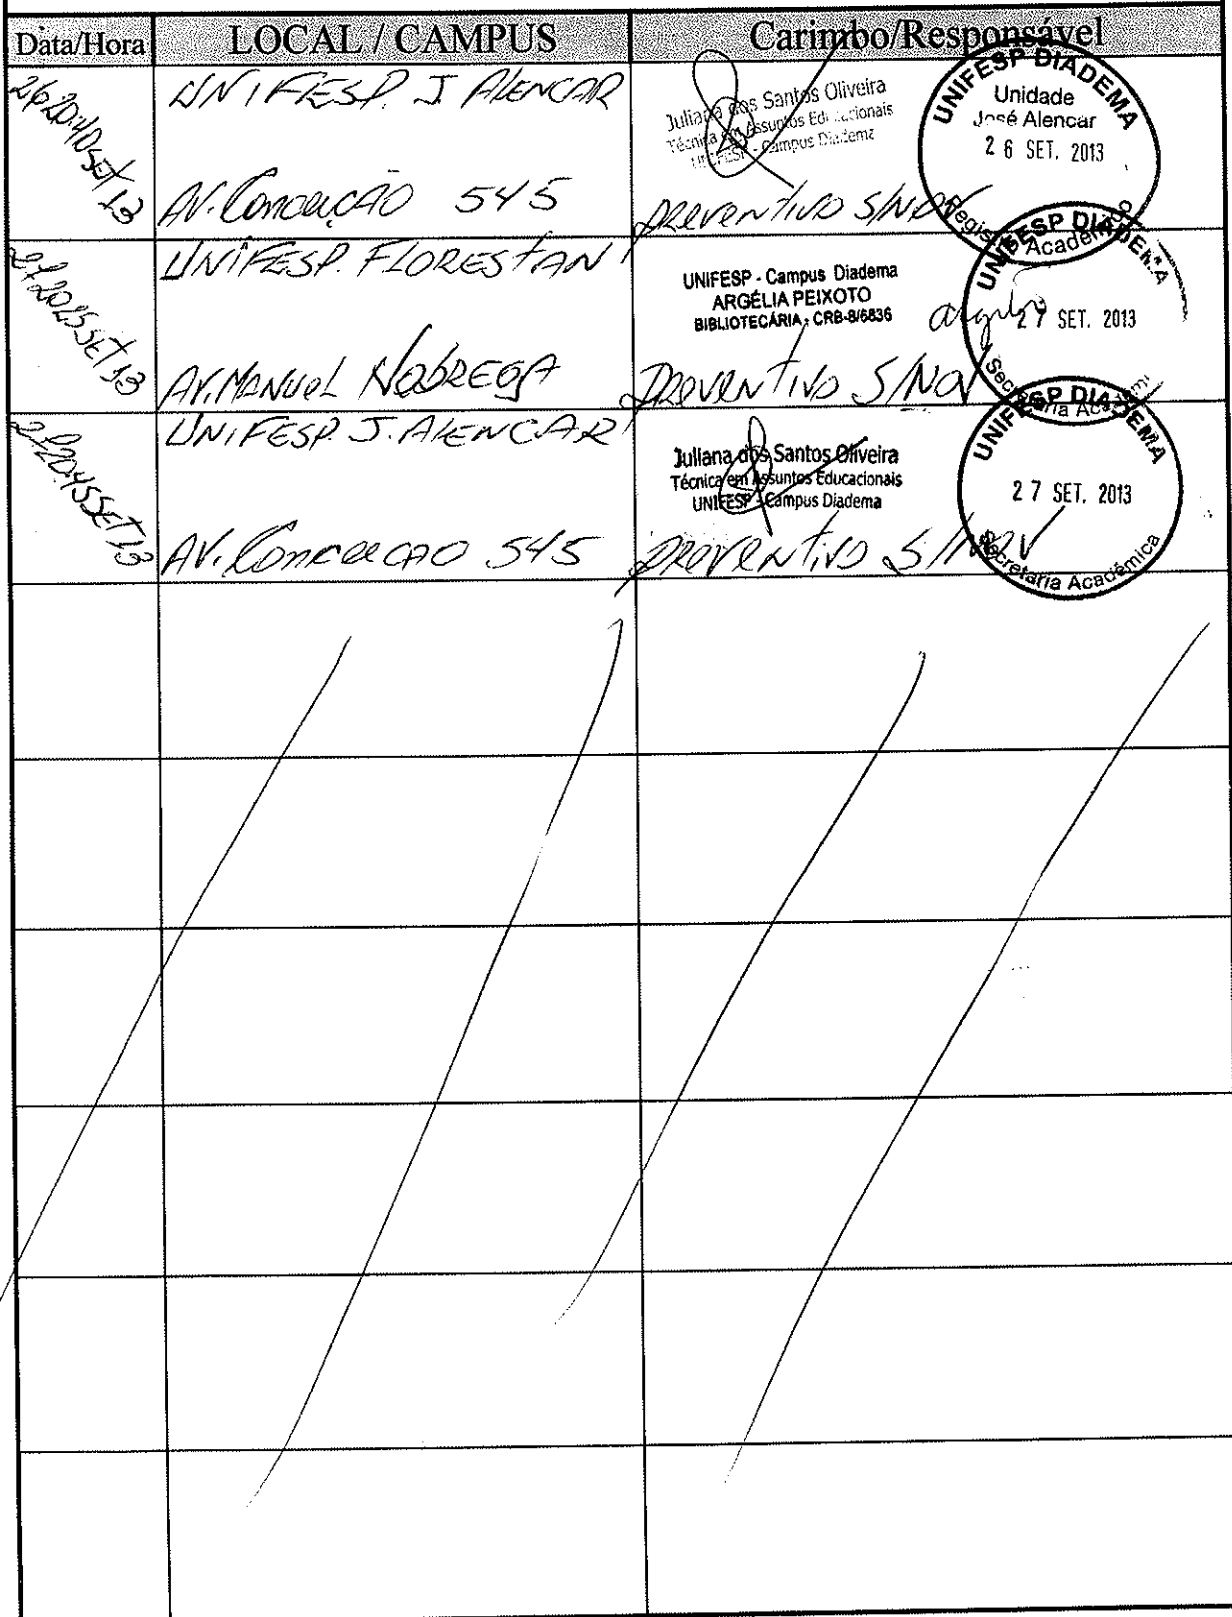 Data/Hora LOCAL / CAMPUS Carimbo/Responsável
262040SET13
UNIFESP. J ALENCAR
AV. Conceição 545
Juliana dos Santos Oliveira
Técnica em Assuntos Educacionais
UNIFESP - Campus Diadema
PREVENTIVO S/NOV
UNIFESP DIADEMA
Unidade
José Alencar
26 SET. 2013
Acadêmico
272025SET13
UNIFESP. FLORESTAN
AV. MANUEL NOBREGA
UNIFESP - Campus Diadema
ARGÉLIA PEIXOTO
BIBLIOTECÁRIA - CRB-8/6836
PREVENTIVO S/NOV
UNIFESP DIADEMA
27 SET. 2013
Secretaria
272045SET13
UNIFESP. J. ALENCAR
AV. Conceicao 545
Juliana dos Santos Oliveira
Técnica em Assuntos Educacionais
UNIFESP - Campus Diadema
PREVENTIVO S/NOV
UNIFESP DIADEMA
27 SET. 2013
Secretaria Acadêmica